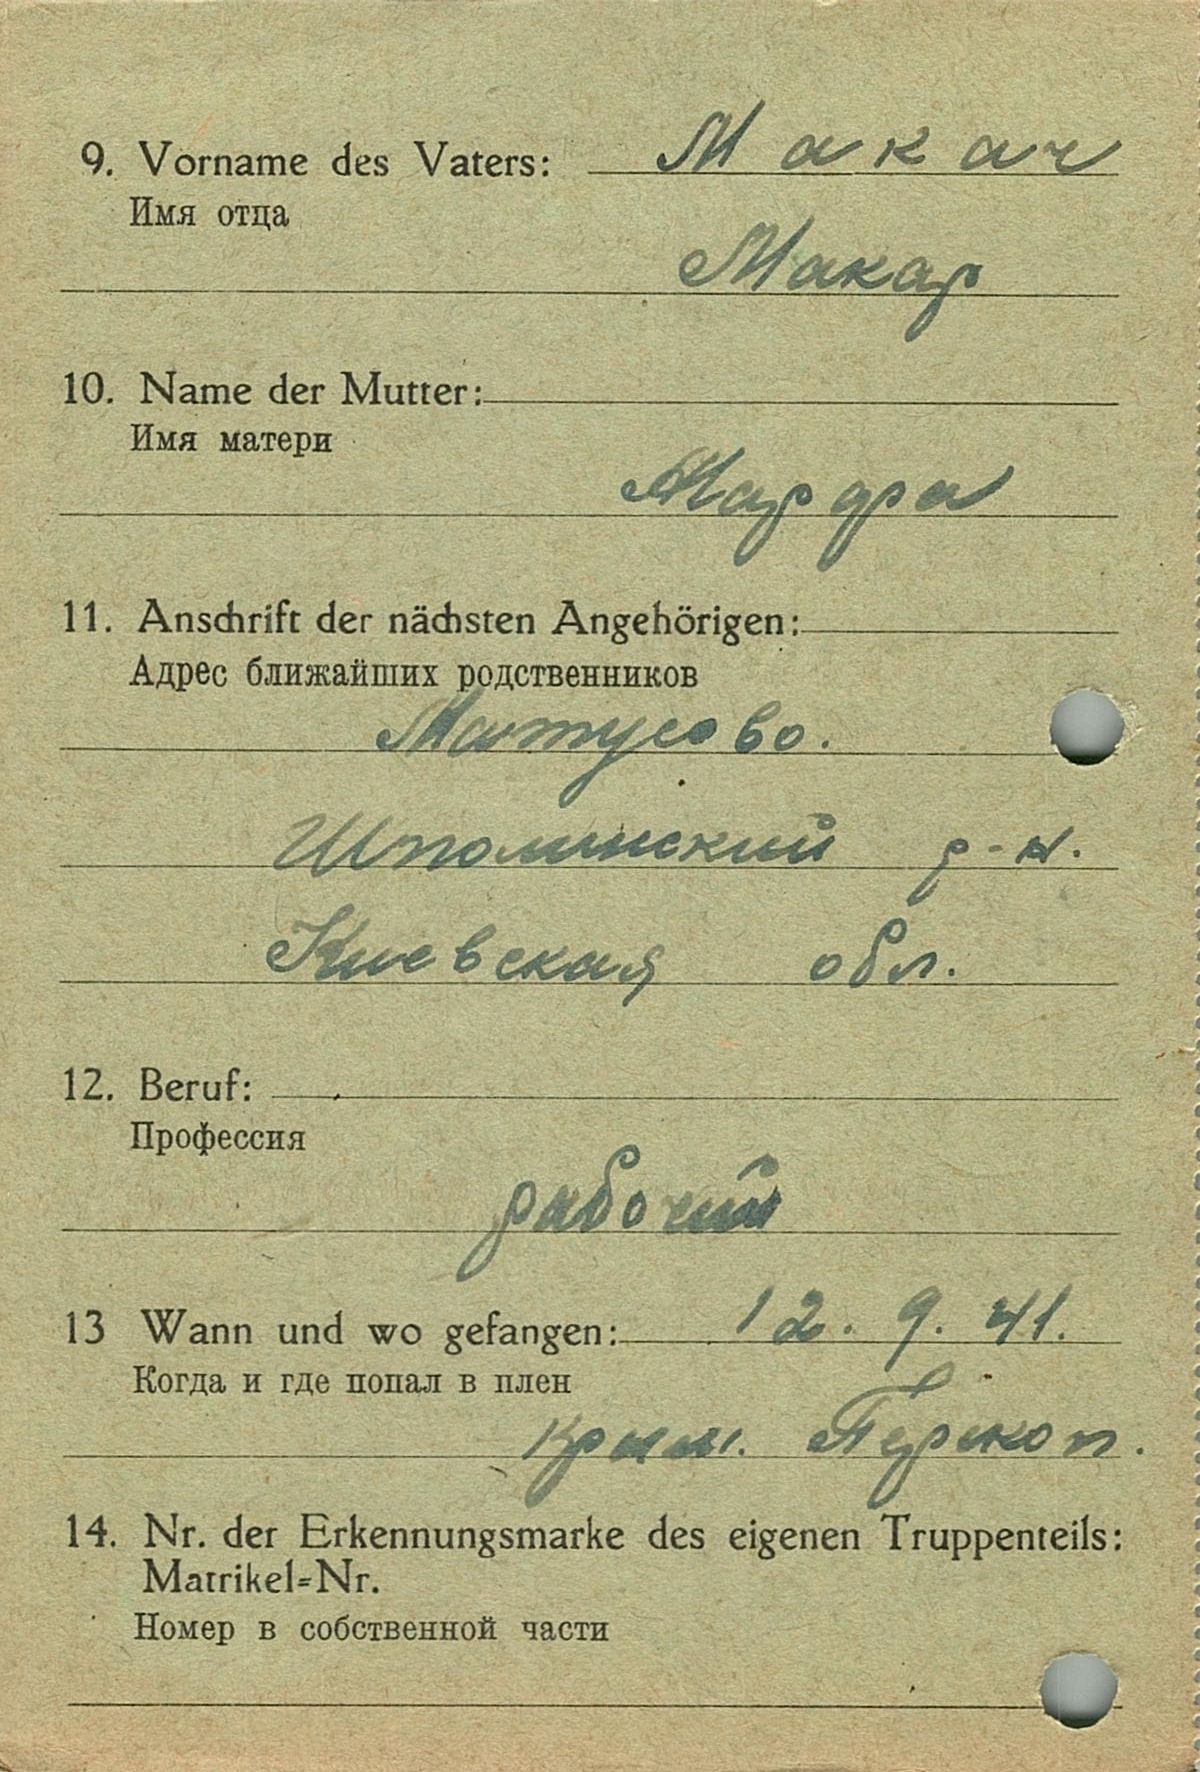 9. Vorname des Vaters: Makar
Имя отца
Макар
10. Name der Mutter:
Имя матери
Марфа
11. Anschrift der nächsten Angehörigen:
Адрес ближайших родственников
Матусово.
Шполинский р-н.
Киевская обл.
12. Beruf:
Профессия
рабочий
13 Wann und wo gefangen: 12.9.41.
Когда и где попал в плен
Крым. Перекоп.
14. Nr. der Erkennungsmarke des eigenen Truppenteils:
Matrikel-Nr.
Номер в собственной части